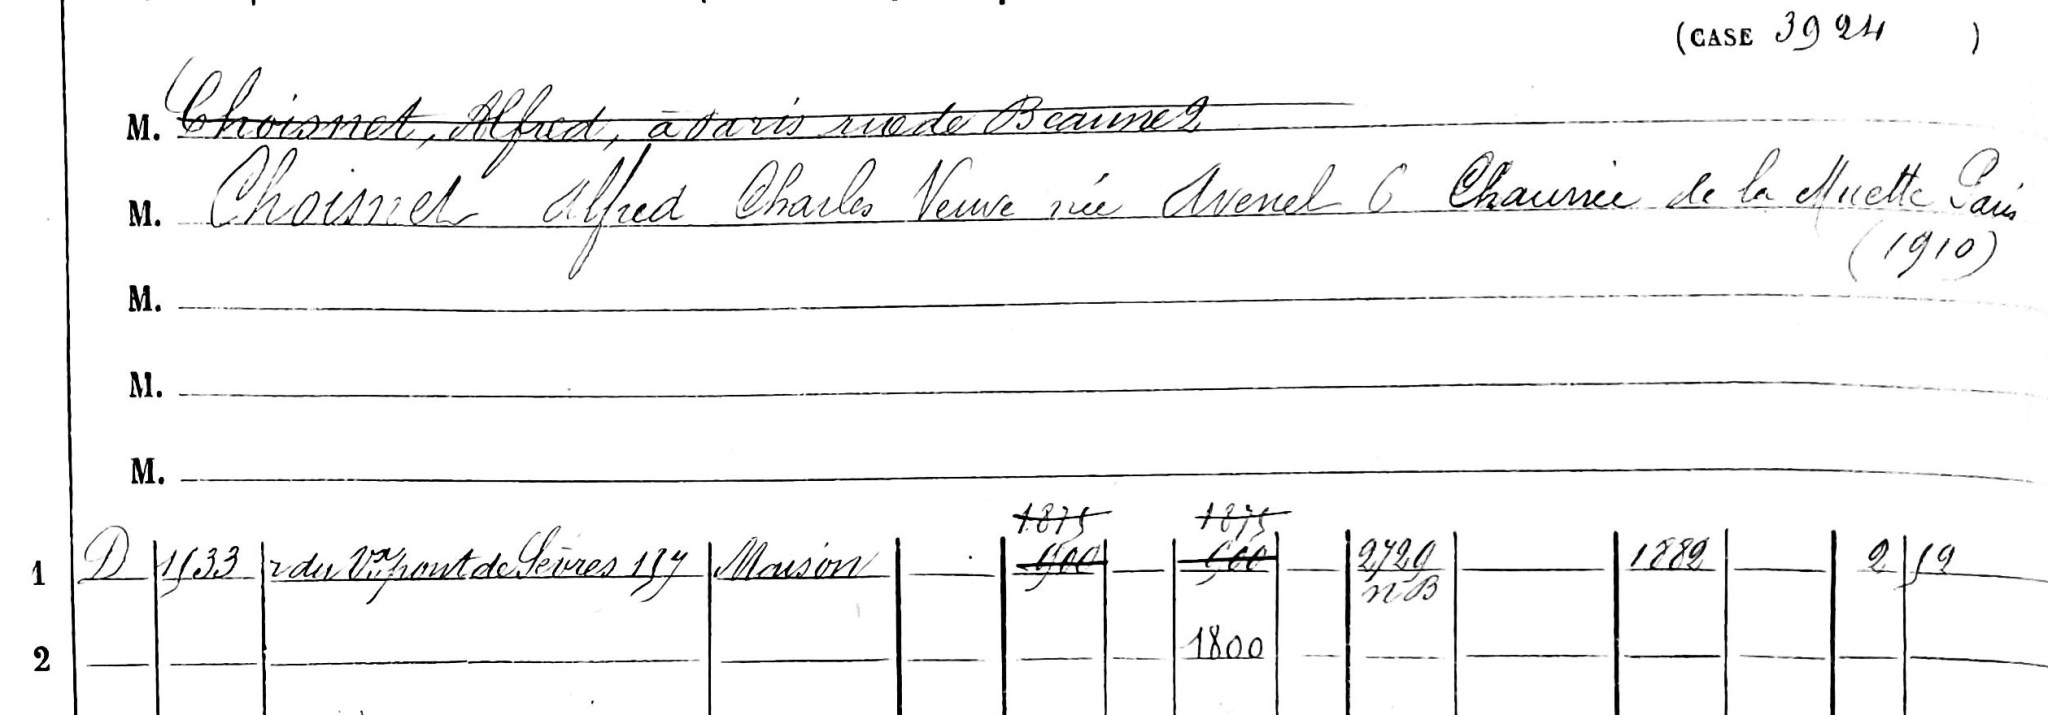 (CASE 3924 )
M. Choisnet, Alfred, à Paris rue de Beaune 2
M. Choisnet Alfred Charles Veuve née Avenel 6 Chaussée de la Muette Paris
(1910)
M.
M.
M.
1875 1875
1 D 1533 r du Vx pont de Sèvres 157 Maison 900 900 2729 1882 2 52
n B
2 1800